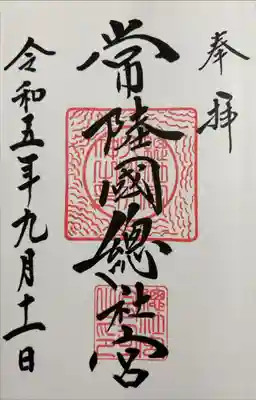 奉拝
常陸國總社宮
令和五年九月十一日